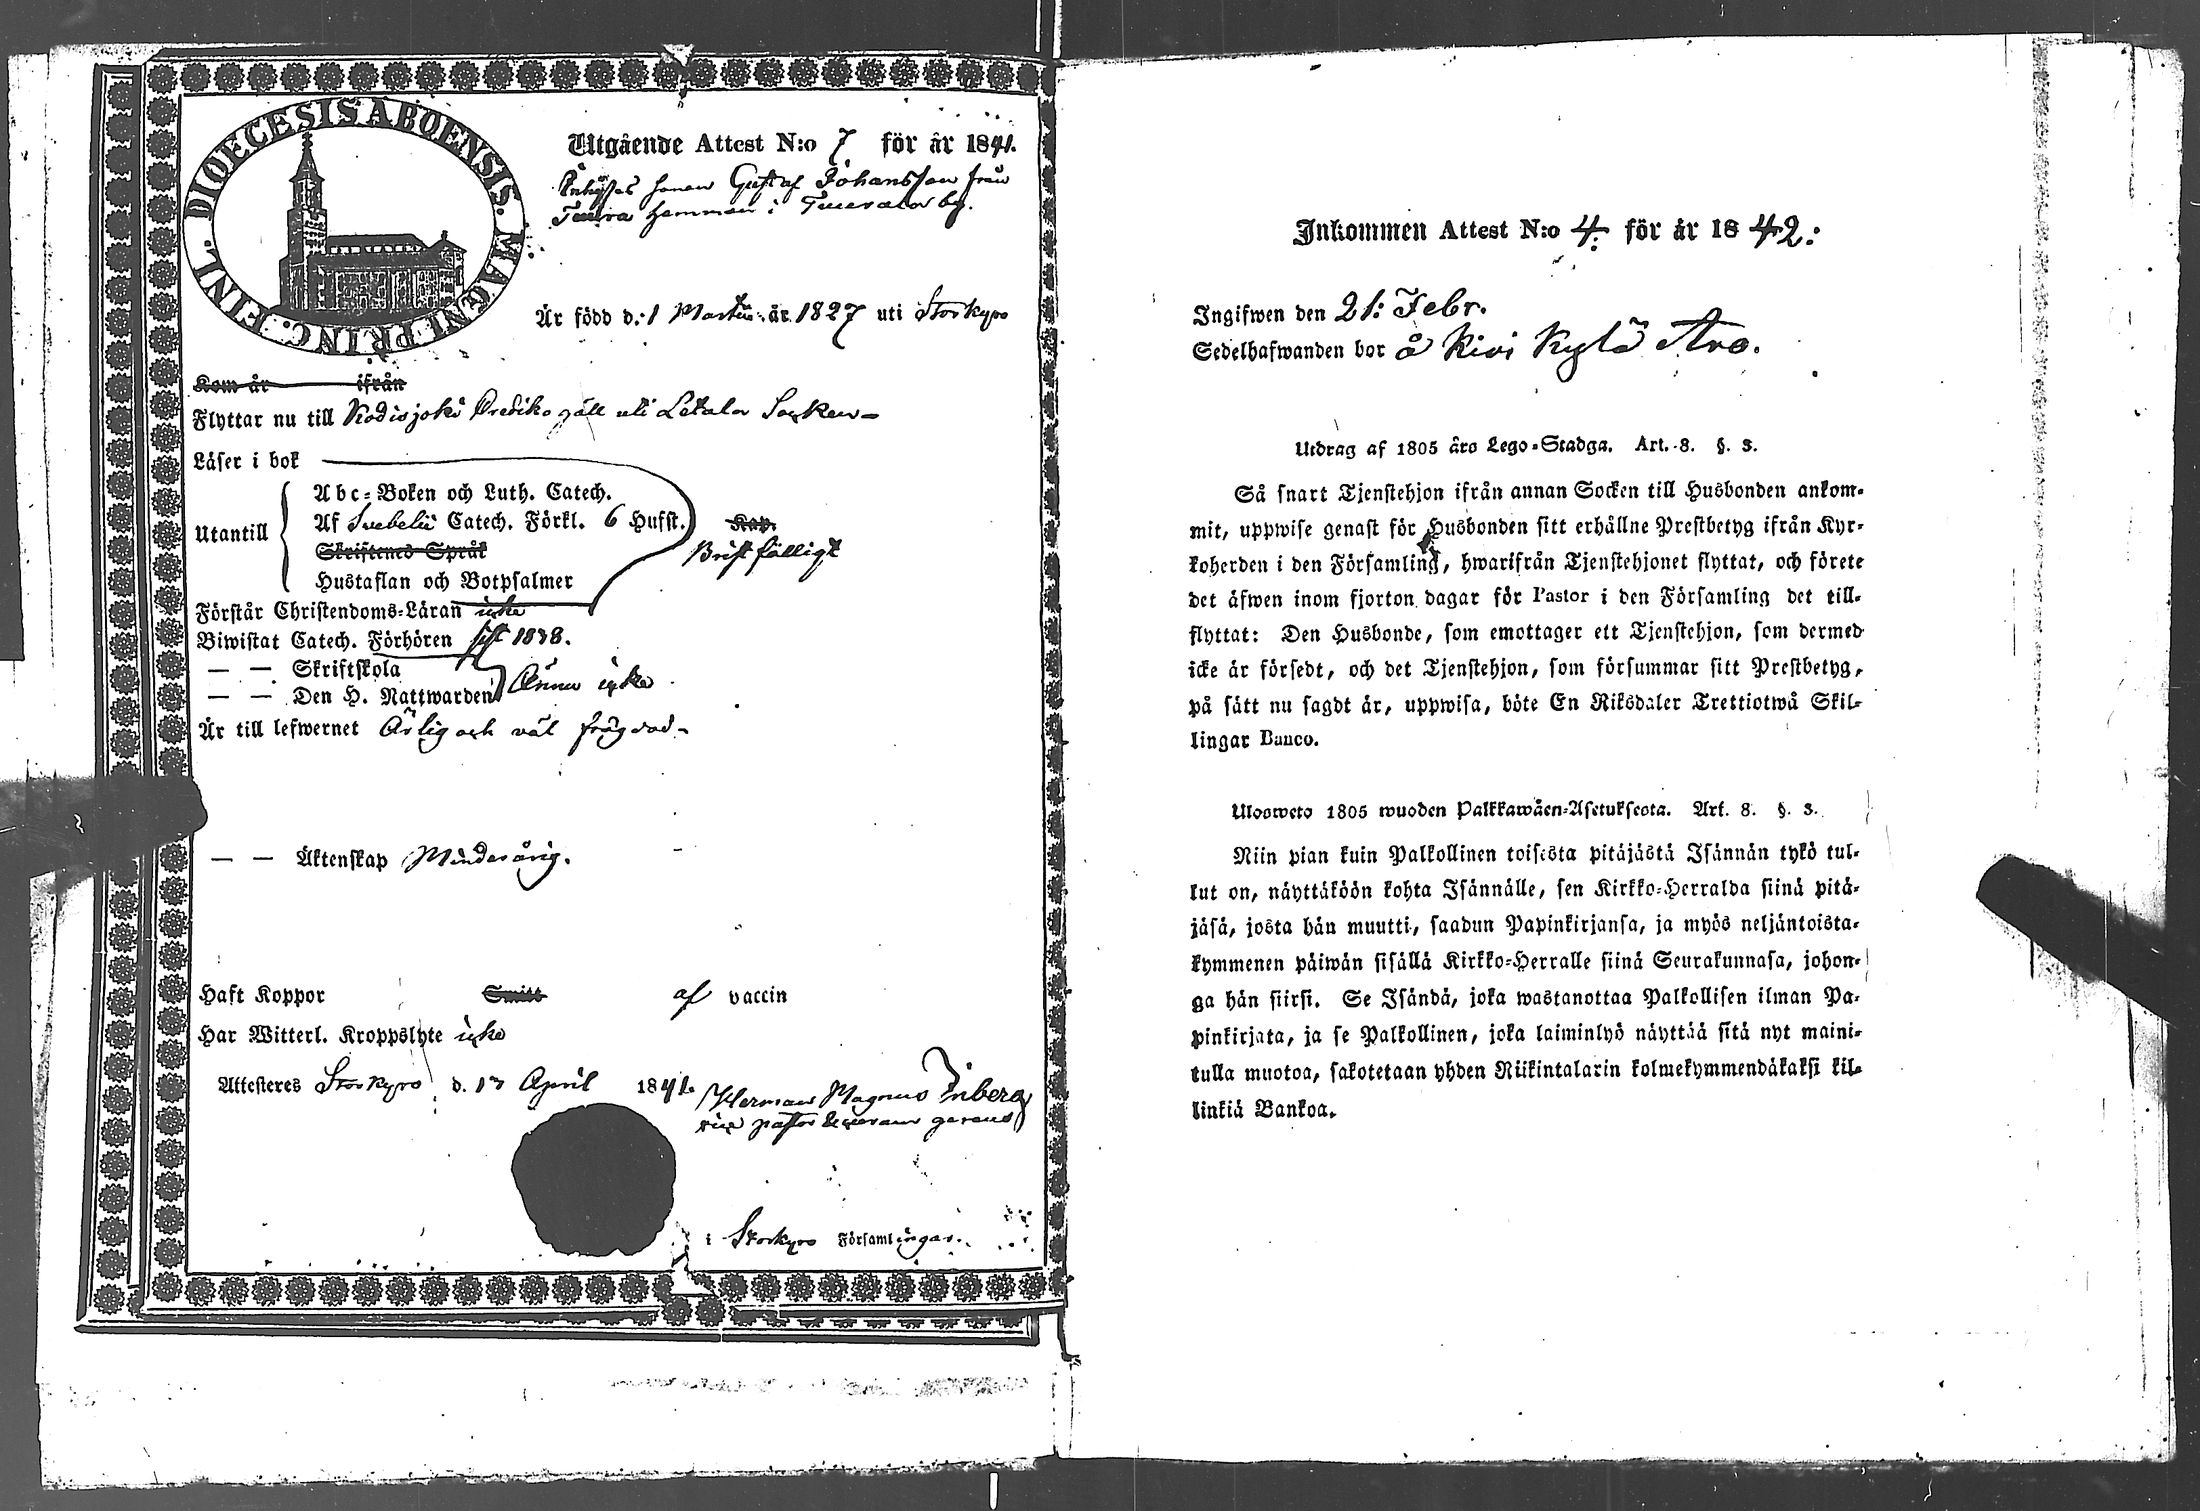 DIOECESIS ABOENSIS. MAGNI PRINC: FINL.
Utgående Attest N:o 7 för år 1841.
Inhyses sonen Gustaf Johansson från
hemman i by.
Är född d. 1 Martii år 1827 uti Storkyro
Kom år ifrån
Flyttar nu till Kodisjoki Prediko gäll uti Letala Socken
Läser i bok
Abc-Boken och Luth. Catech.
Utantill
Af Svebelii Catech. Förkl. 6 Hufst. Kap.
Skriftenes Språk
Bristfälligt
Hustaflan och Botpsalmer
Förstår Christendoms-Läran icke
Biwistat Catech. Förhören sist 1838.
— — Skriftskola
— — Den H. Nattwarden Ännu icke
Är till lefwernet Ärlig och väl frägdad
— — Äktenskap Minderårig.
Haft Koppor Smitt af vaccin
Har Witterl. Kroppslyte icke
Attesteres Storkyro d. 13 April 1841.
Herman Magnus Inberg
vice pastor
i Storkyro Församlingar.
Inkommen Attest N:o 4: för år 1842:
Ingifwen den 21: Febr.
Sedelhafwanden bor å Kivi Kylä Aro.
Utdrag af 1805 års Lego-Stadga. Art. 8. §. 3.
Så snart Tjenstehjon ifrån annan Socken till Husbonden ankom-
mit, uppwise genast för Husbonden sitt erhållne Prestbetyg ifrån Kyr-
koherden i den Församling, hwarifrån Tjenstehjonet flyttat, och förete
det äfwen inom fjorton dagar för Pastor i den Församling det till-
flyttat: Den Husbonde, som emottager ett Tjenstehjon, som dermed
icke är försedt, och det Tjenstehjon, som försummar sitt Prestbetyg,
på sätt nu sagdt är, uppwisa, böte En Riksdaler Trettiotwå Skil-
lingar Banco.
Ulosweto 1805 wuoden Palkkawäen-Asetuksesta. Art. 8. §. 3.
Niin pian kuin Palkollinen toisesta pitäjästä Isännän tykö tul-
lut on, näyttäköön kohta Isännälle, sen Kirkko-Herralda siinä pitä-
jäsä, josta hän muutti, saadun Papinkirjansa, ja myös neljäntoista-
kymmenen päiwän sisällä Kirkko-Herralle siinä Seurakunnasa, johon-
ga hän siirsi. Se Isändä, joka wastanottaa Palkollisen ilman Pa-
pinkirjata, ja se Palkollinen, joka laiminlyö näyttää sitä nyt maini-
tulla muotoa, sakotetaan yhden Riikintalarin kolmekymmendäkaksi kil-
linkiä Bankoa.